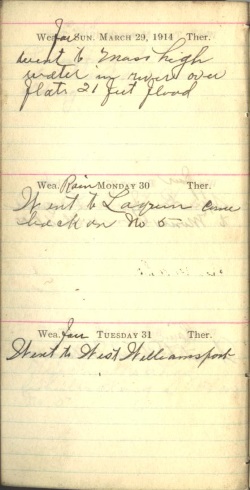 Wea. Fair Sun. March 29, 1914 Ther.
Went to Mass high
water in river over
flats 21 feet flood
Wea. Rain Monday 30 Ther.
Went to Laquin came
back on No 5
Wea. Fair Tuesday 31 Ther.
Went to West Williamsport